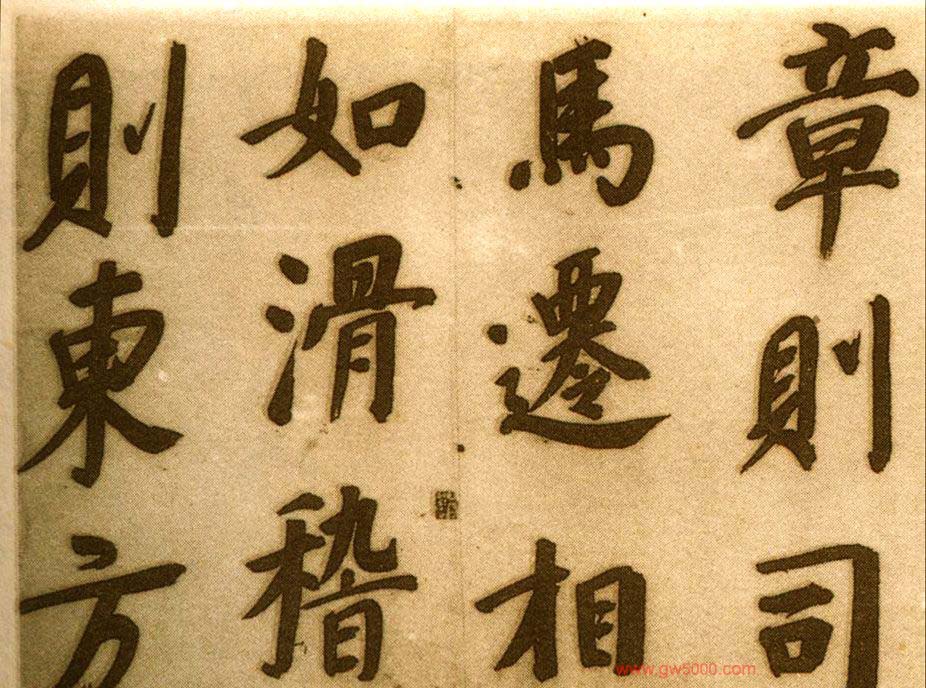 章則司
馬遷相
如滑稽
則東方
www.gw5000.com